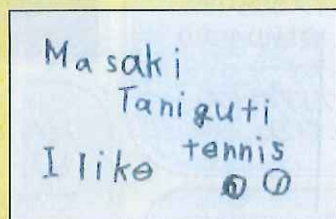 Masaki
Taniguti
I like tennis